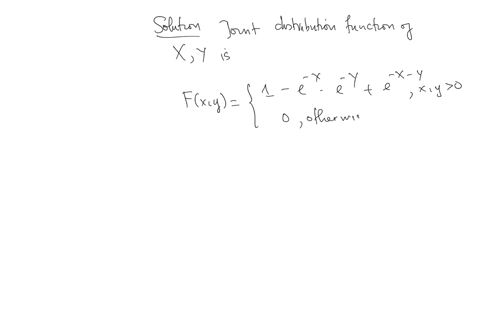 Solution Joint distribution function of
X, Y is
F(x,y) = { 1 - e^-x - e^-y + e^-x-y, x,y>0
0, otherwi